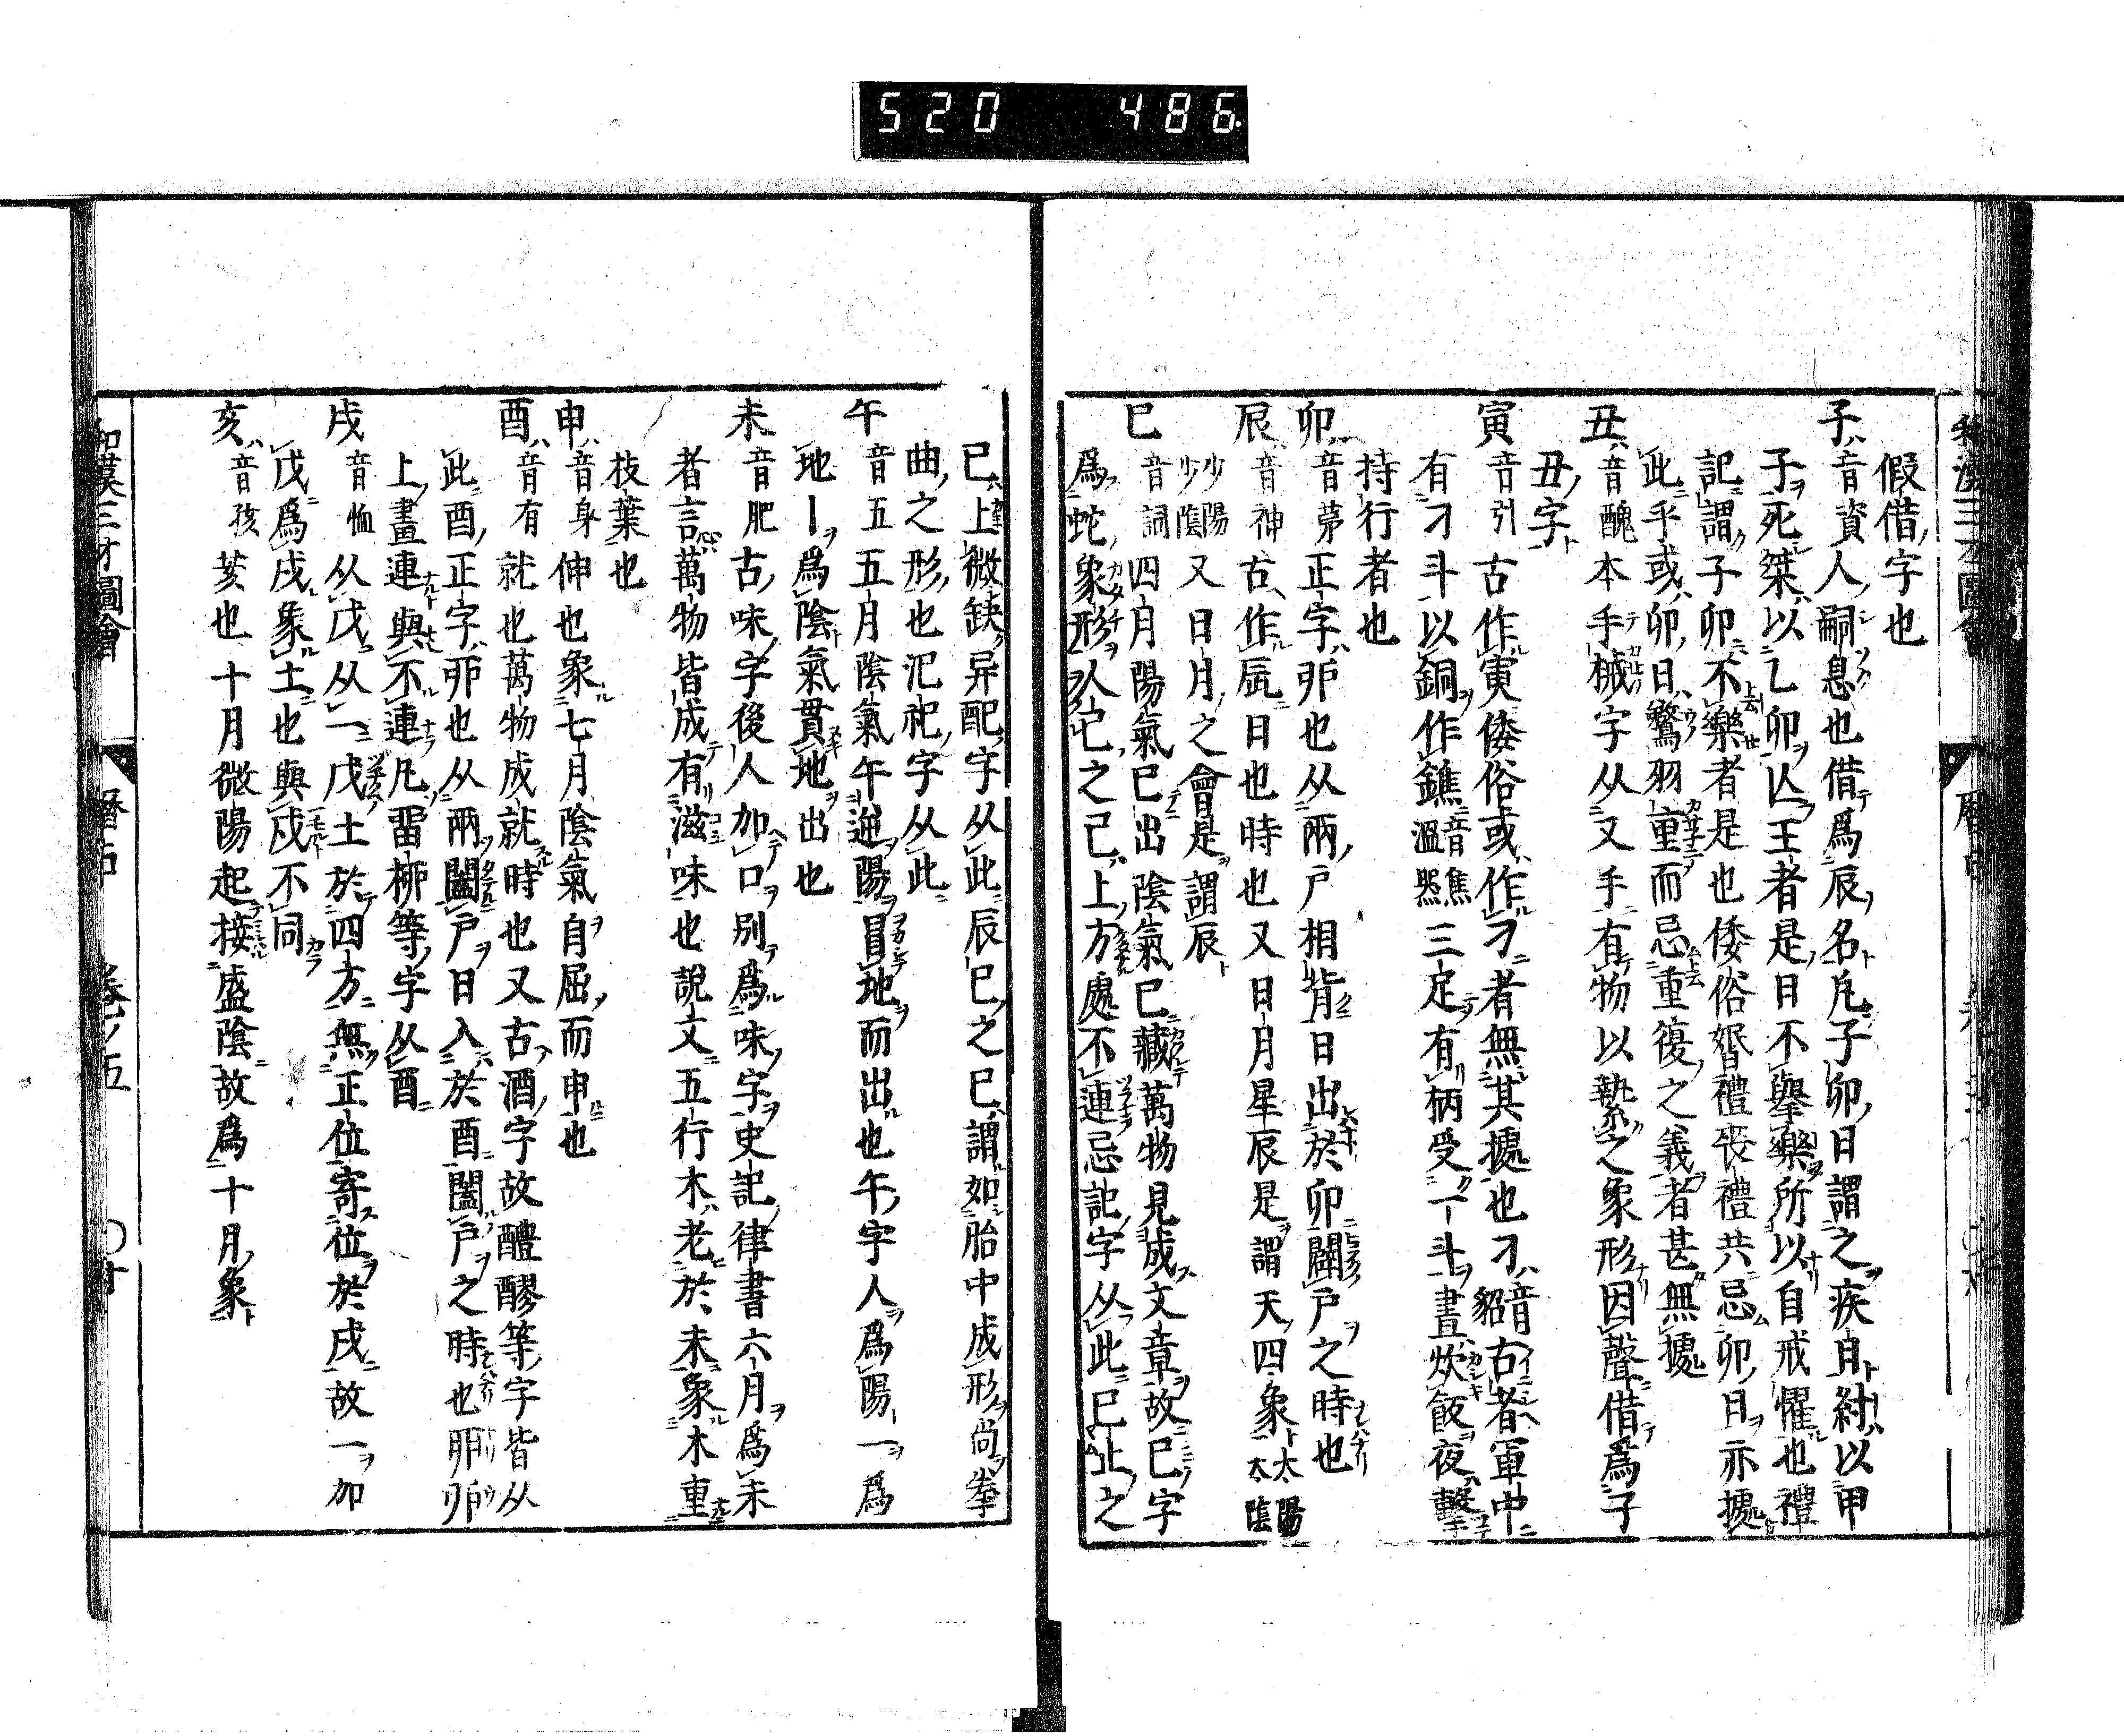 520 486
假借字也
子 音資 人嗣息也借爲辰名凡子卯日謂之疾日紂以甲
子死桀以乙卯亾王者是日不擧樂所以自戒懼也禮
記謂子卯不樂者是也倭俗婚禮喪禮共忌卯日亦據
此乎或卯日鷖羽重而忌重復之義者甚無據
丑 音醜 本手械字从又手有物以縶之象形因聲借爲子
丑字
寅 音引 古作寅倭俗或作刁者無其據也刁音貂右者軍中
有刁斗以銅作鐎音焦溫器三足有柄受一斗晝炊飯夜擊
持行者也
卯 音茅 正字戼也从兩戶相背日出於卯闢戶之時也
辰 音神 古作辰日也時也又日月星辰是謂天四象太陽太陰
少陽少陰又日月之會是謂辰
巳 音詞 四月陽氣巳出陰氣巳藏萬物見成文章故巳字
爲蛇象形人巳之己上方處不連忌記字从此巳止之
已上微缺异配字从此辰巳之巳謂如胎中成形尚拳
曲之形也氾祀字从此
午 音五 五月陰氣午逆陽冒地而出也午字人爲陽一爲
地丨爲陰氣貫地出也
未 音肥 古味字後人加口別爲味字史記律書六月爲未
者言萬物皆成有滋味也說文五行木老於未象木重
枝葉也
申 音身 伸也象七月陰氣自屈而申也
酉 音有 就也萬物成就時也又古酒字故醴醪等字皆从
此酉正字丣也从兩闔戶日入於酉闔戶之時也
上畫連與不連凡畱桺等字从酉
戌 音恤 从戊从一戊土於四方無正位寄位於戌故一加
戊爲戌象土也與戍不同
亥 音孩 荄也十月微陽起接盛陰故爲十月象
和漢三才圖會 曆占 卷ノ五 〇十